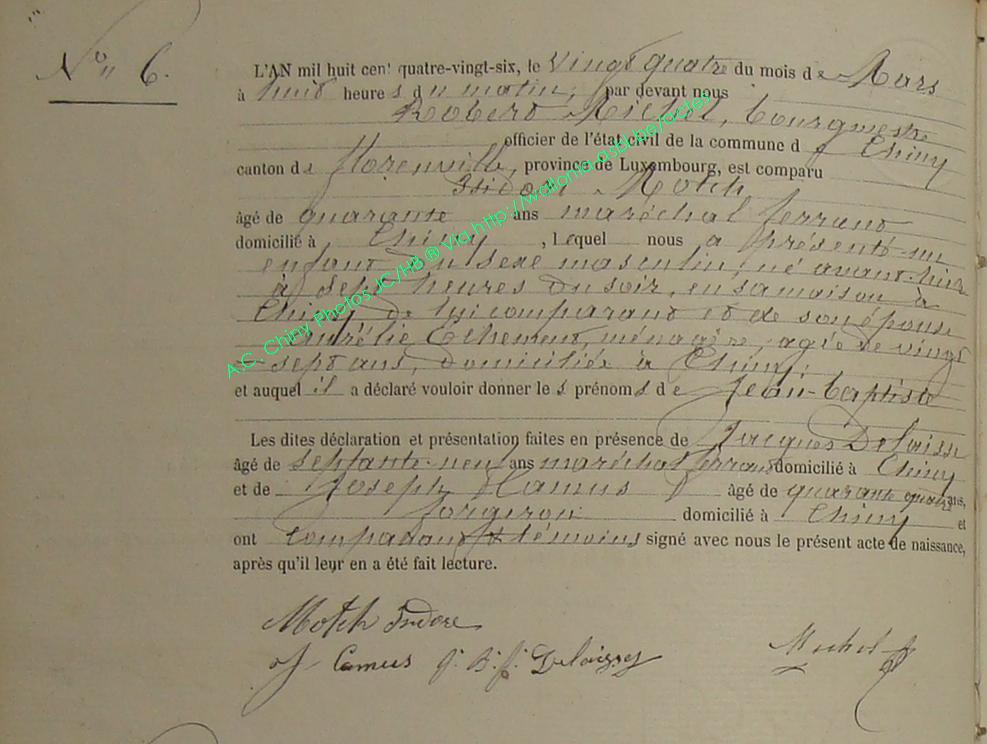 N° 6.
L'AN mil huit cent quatre-vingt-six, le vingt quatre du mois de Mars
à huit heures du matin, par devant nous
Robert Michel, bourgmestre
officier de l'état civil de la commune d Chiny
canton de Florenville, province de Luxembourg, est comparu
Isidore Motch
âgé de quarante ans maréchal ferrant
domicilié à Chiny, lequel nous a présenté un
enfant du sexe masculin, né avant-hier
à sept heures du soir, en sa maison à
Chiny de lui comparant et de son épouse
Aurélie Ethement, ménagère, agée de vingt
sept ans, domiciliée à Chiny,
et auquel il a déclaré vouloir donner les prénoms de Jean-baptiste
Les dites déclaration et présentation faites en présence de Jacques Delaisse
âgé de septante-neuf ans maréchal ferrant domicilié à Chiny
et de Joseph Camus âgé de quarante quatre ans,
forgeron domicilié à Chiny et
ont comparant et témoins signé avec nous le présent acte de naissance,
après qu'il leur en a été fait lecture.
Motch Isidore
J Camus J. B. J. Delaissey
Michel
A.C. Chiny Photos JC/HB ® Via http://wallonia.asbl.be/actes